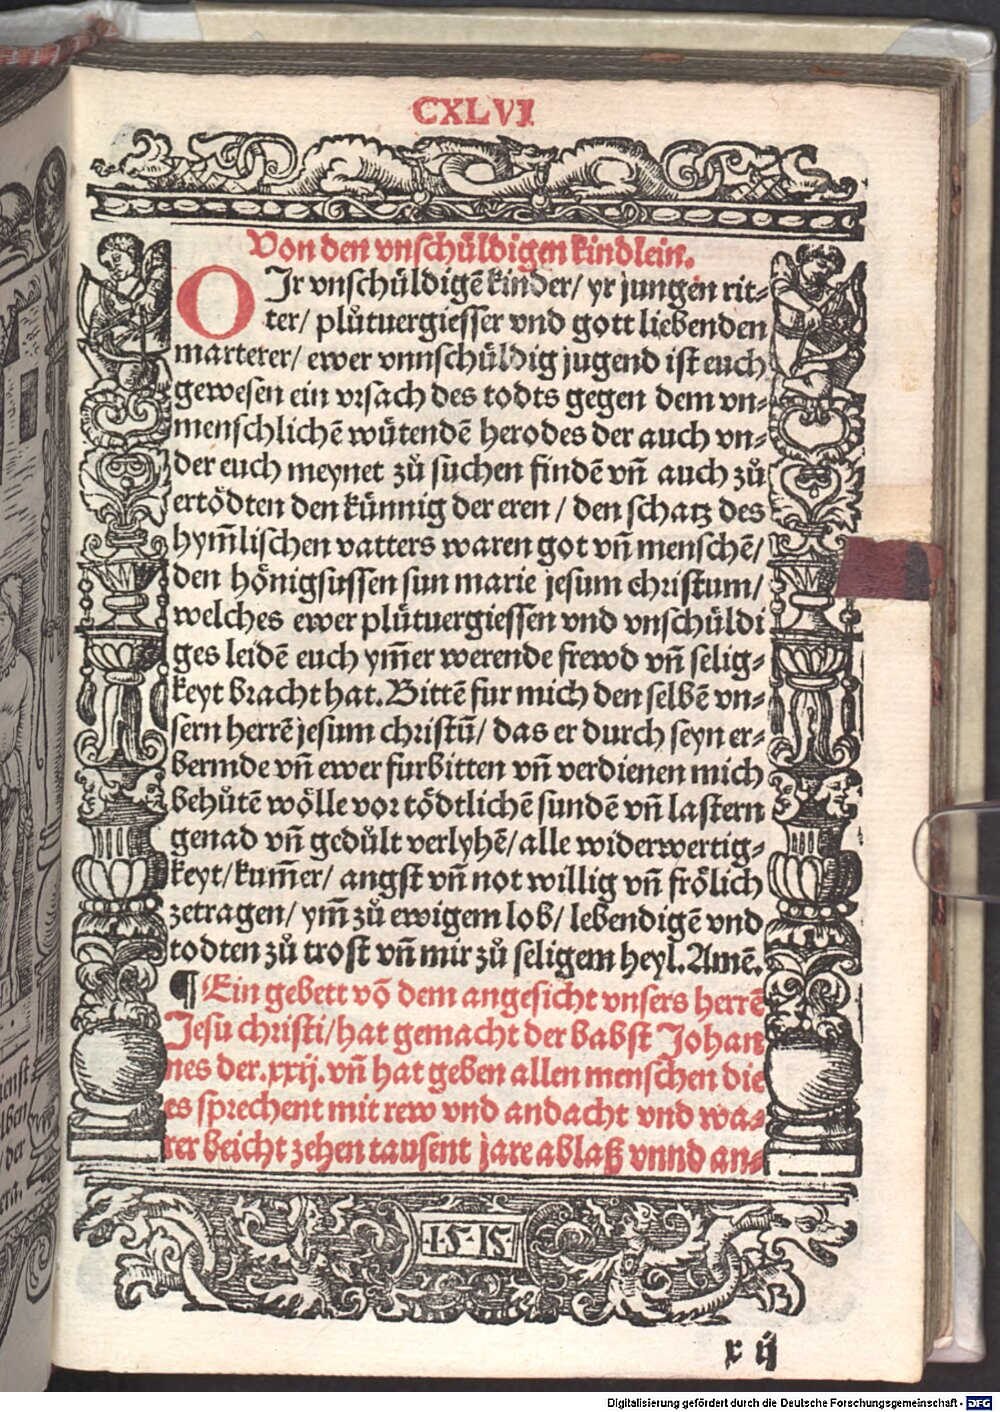 CXLVI
Von den vnschüldigen kindlein.
OJr vnschüldigẽ kinder/ yr jungen rit⸗
ter/ plůtuergiesser vnd gott liebenden
marterer/ ewer vnnschüldig jugend ist euch
gewesen ein vrsach des todts gegen dem vn⸗
menschlichẽ wütendẽ herodes der auch vn⸗
der euch meynet zů suchen findẽ vñ auch zů
ertödten den künnig der eren / den schatz des
hym̃lischen vatters waren got vñ menschẽ/
den hönigsüssen sun marie jesum christum/
welches ewer plůtuergiessen vnd vnschüldi
ges leidẽ euch ym̃er werende frewd vñ selig⸗
keyt bracht hat. Bittẽ fur mich den selbẽ vn⸗
sern herrẽ jesum christũ/ das er durch seyn er⸗
bermde vñ ewer furbitten vñ verdienen mich
behůtẽ wölle vor tödtlichẽ sundẽ vñ lastern
genad vñ gedůlt verlyhẽ/ alle widerwertig⸗
keyt/ kum̃er/ angst vñ not willig vñ frölich
zetragen/ ym̃ zů ewigem lob/ lebendigẽ vnd
todten zů trost vñ mir zů seligem heyl. Amẽ.
¶ Ein gebett võ dem angesicht vnsers herrẽ
Jesu christi/ hat gemacht der babst Johan
nes der .xxij. vñ hat geben allen menschen die
es sprechent mit rew vnd andacht vnd wa⸗
rer beicht zehen tausent jare ablaß vnnd an⸗
·15·15·
x ij
ienst
lben
/ der
era.
Digitalisierung gefördert durch die Deutsche Forschungsgemeinschaft - DFG